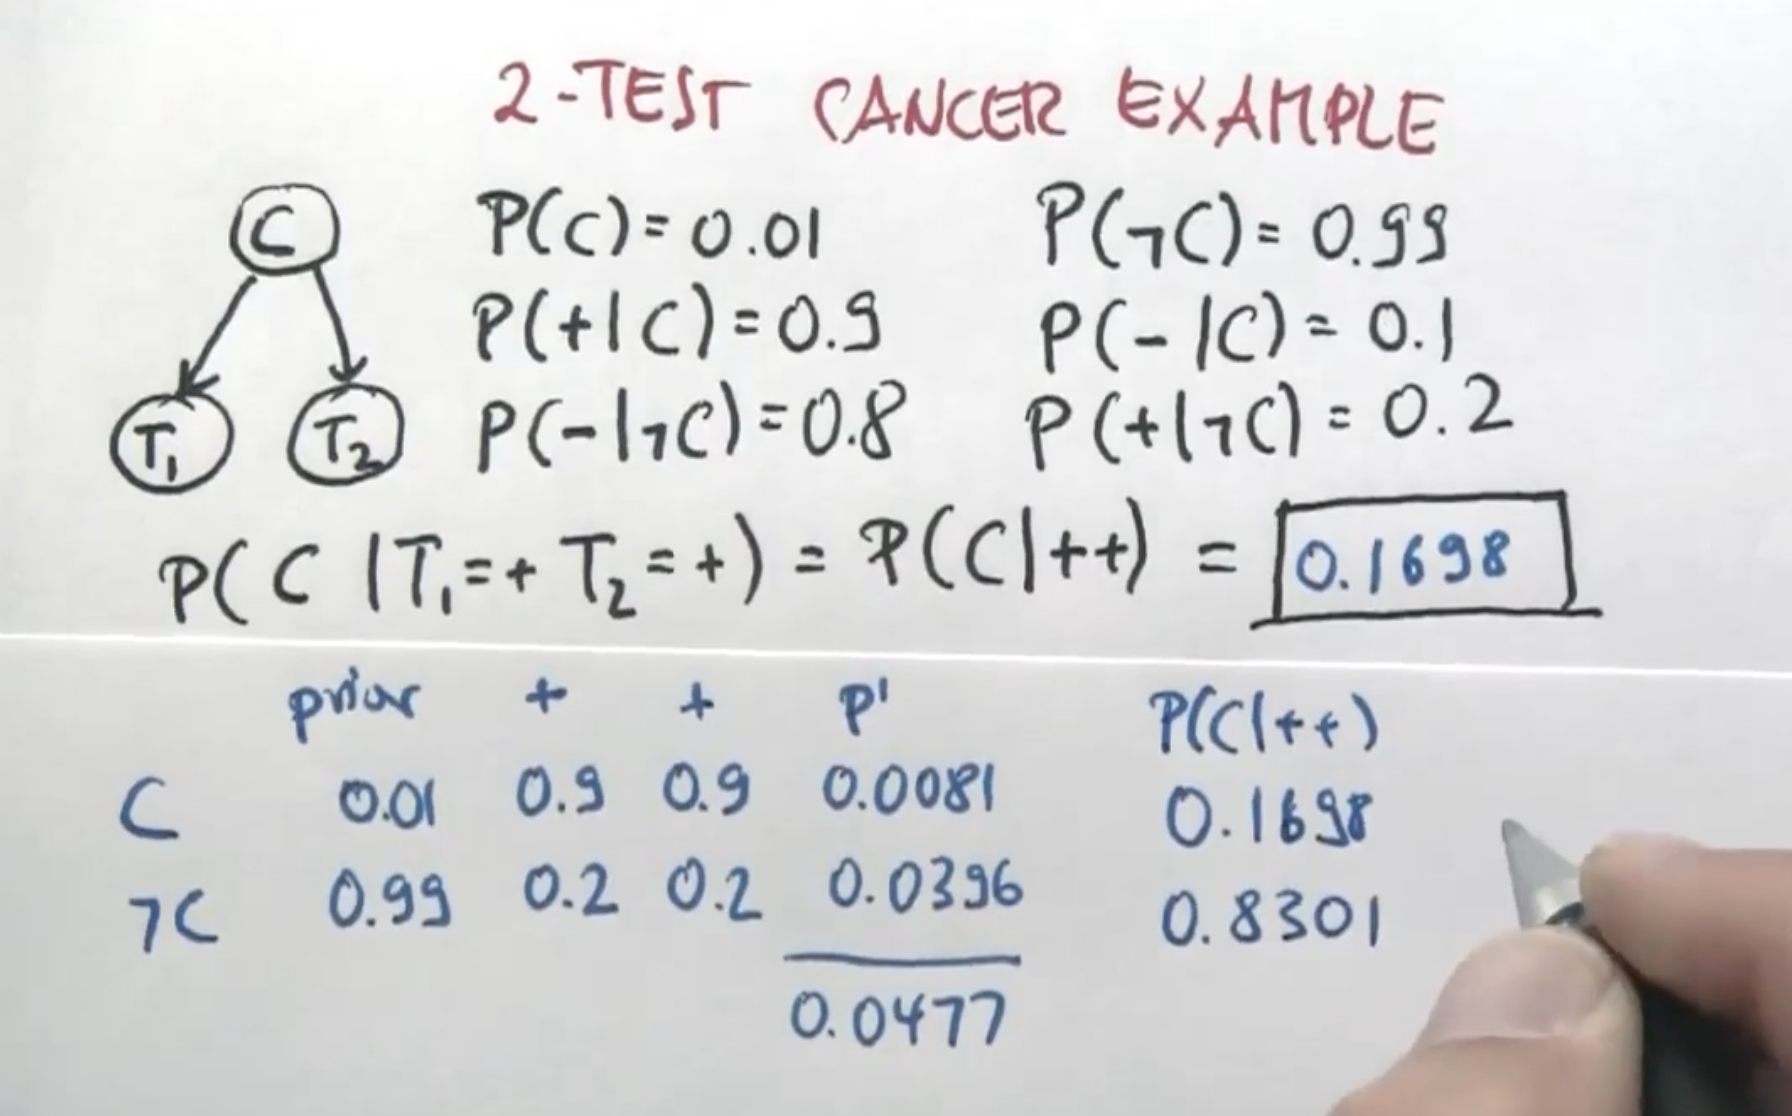 2-TEST CANCER EXAMPLE
C P(C)=0.01 P(¬C)=0.99
P(+|C)=0.9 P(-|C)=0.1
T₁ T₂ P(-|¬C)=0.8 P(+|¬C)=0.2
P(C|T₁=+ T₂=+) = P(C|++) = 0.1698
prior + + P' P(C|++)
C 0.01 0.9 0.9 0.0081 0.1698
¬C 0.99 0.2 0.2 0.0396 0.8301
0.0477